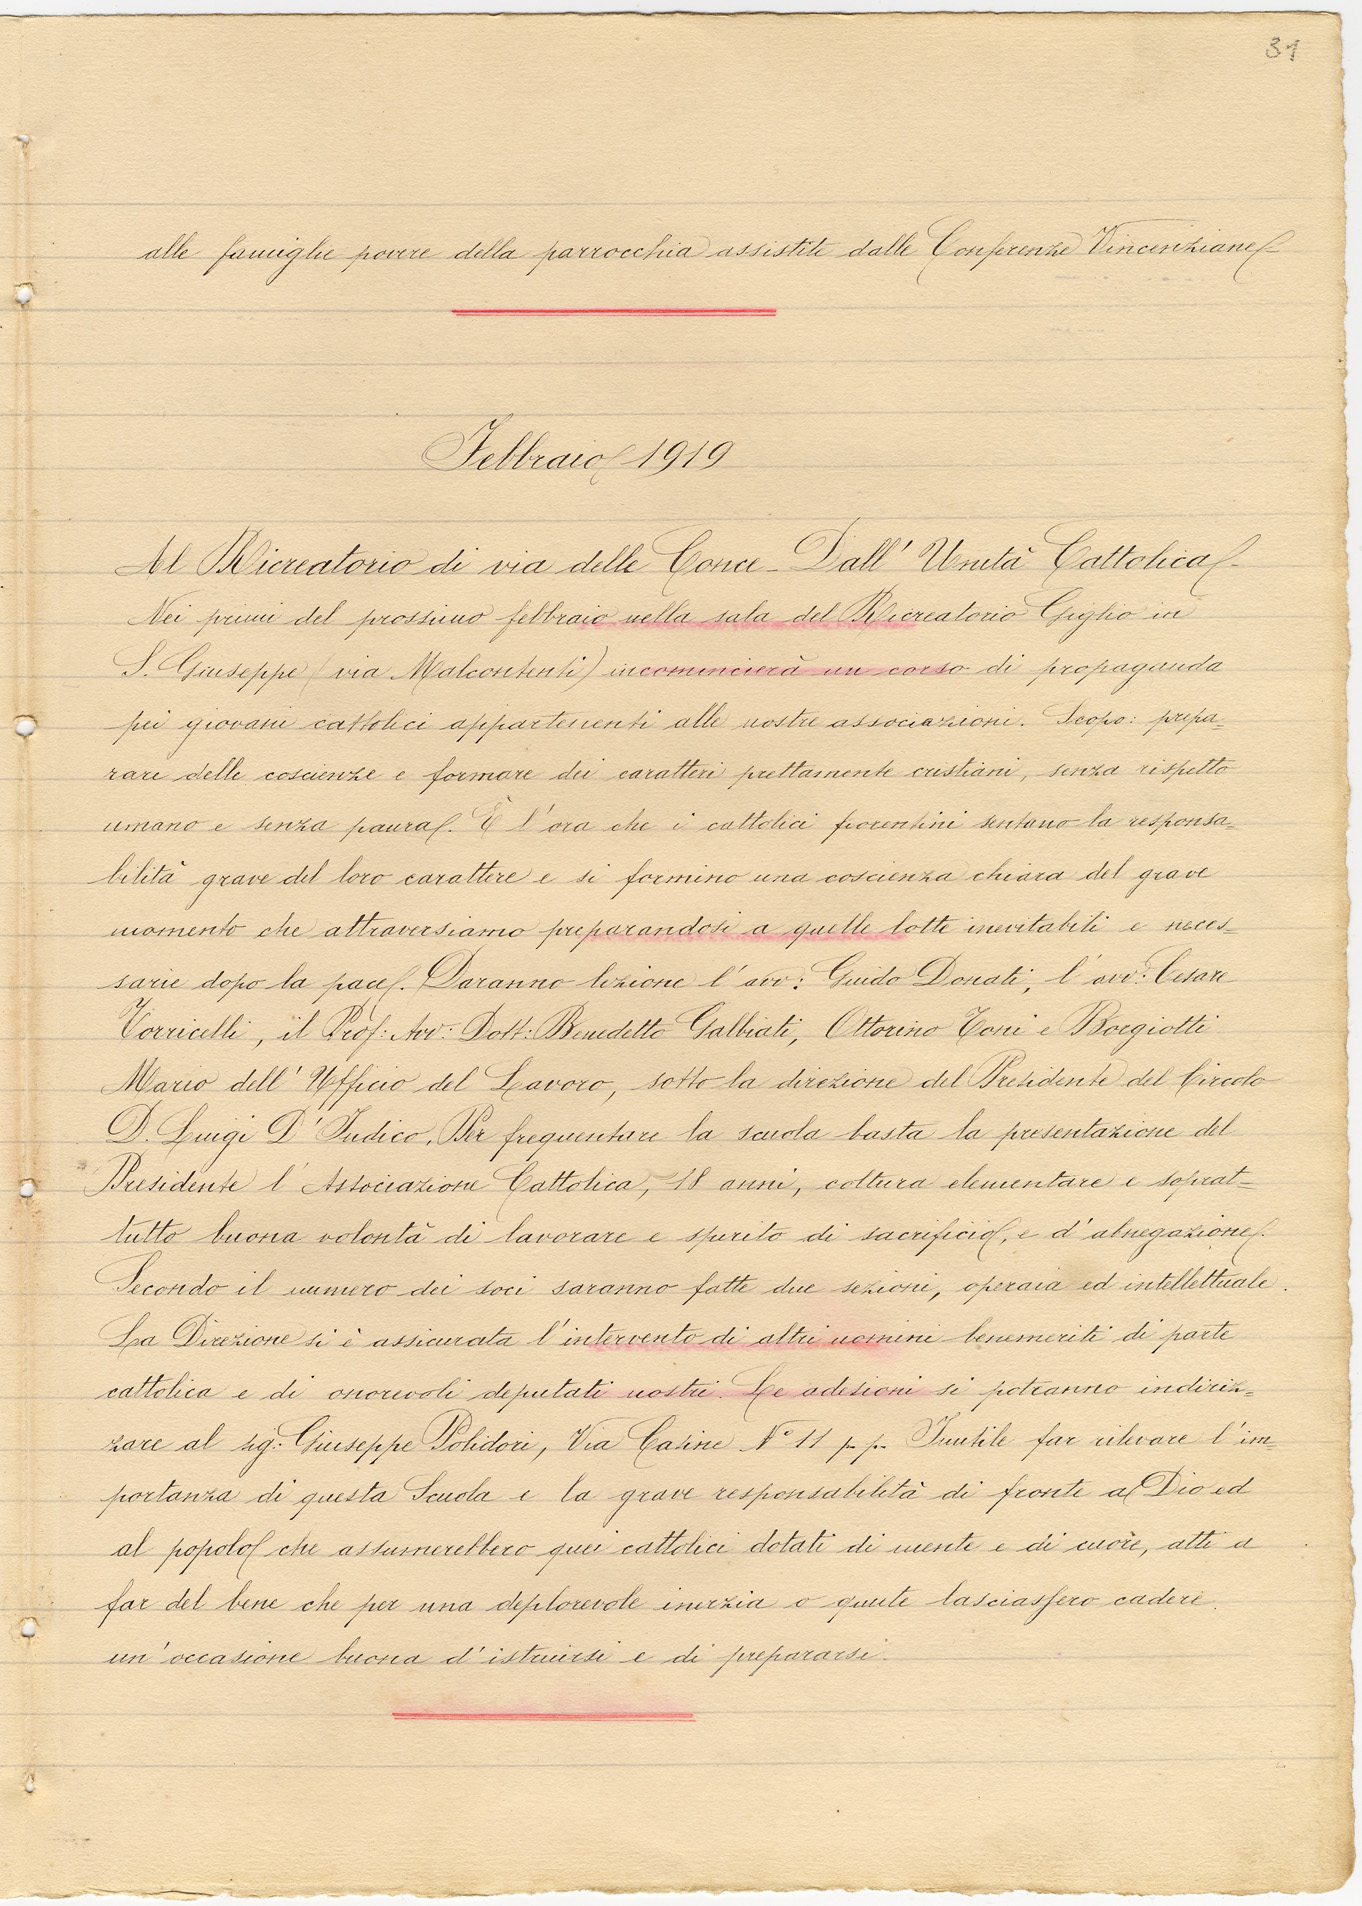 31
alle famiglie povere della parrocchia assistite dalle Conferenze Vincenziane
Febbraio 1919
Al Ricreatorio di via delle Conce - Dall' Unità Cattolica -
Nei primi del prossimo febbraio nella sala del Ricreatorio Giglio in
S. Giuseppe (via Malcontenti) incomincierà un corso di propaganda
pei giovani cattolici appartenenti alle nostre associazioni. Scopo: prepa=
rare delle coscienze e formare dei caratteri prettamente cristiani, senza rispetto
umano e senza paura. È l'ora che i cattolici fiorentini sentano la responsa=
bilità grave del loro carattere e si formino una coscienza chiara del grave
momento che attraversiamo preparandosi a quelle lotte inevitabili e neces=
sarie dopo la pace. Daranno lezione l'avv: Guido Donati, l'avv: Cesare
Torricelli, il Prof: Avv: Dott: Benedetto Galbiati, Ottorino Toni e Borgiotti
Mario dell' Ufficio del Lavoro, sotto la direzione del Presidente del Circolo
D. Luigi D'Indico. Per frequentare la scuola basta la presentazione del
Presidente l'Associazione Cattolica, 18 anni, coltura elementare e soprat=
tutto buona volontà di lavorare e spirito di sacrificio, e d'abnegazione.
Secondo il numero dei soci saranno fatte due sezioni, operaia ed intellettuale.
La Direzione si è assicurata l'intervento di altri uomini benemeriti di parte
cattolica e di onorevoli deputati nostri. Le adesioni si potranno indiriz=
zare al sig: Giuseppe Polidori, Via Casine N° 11 p. p. Inutile far rilevare l'im=
portanza di questa Scuola e la grave responsabilità di fronte a Dio ed
al popolo che assumerebbero quei cattolici dotati di mente e di cuore, atti a
far del bene che per una deplorevole inerzia o quiete lasciassero cadere
un'occasione buona d'istruirsi e di prepararsi.